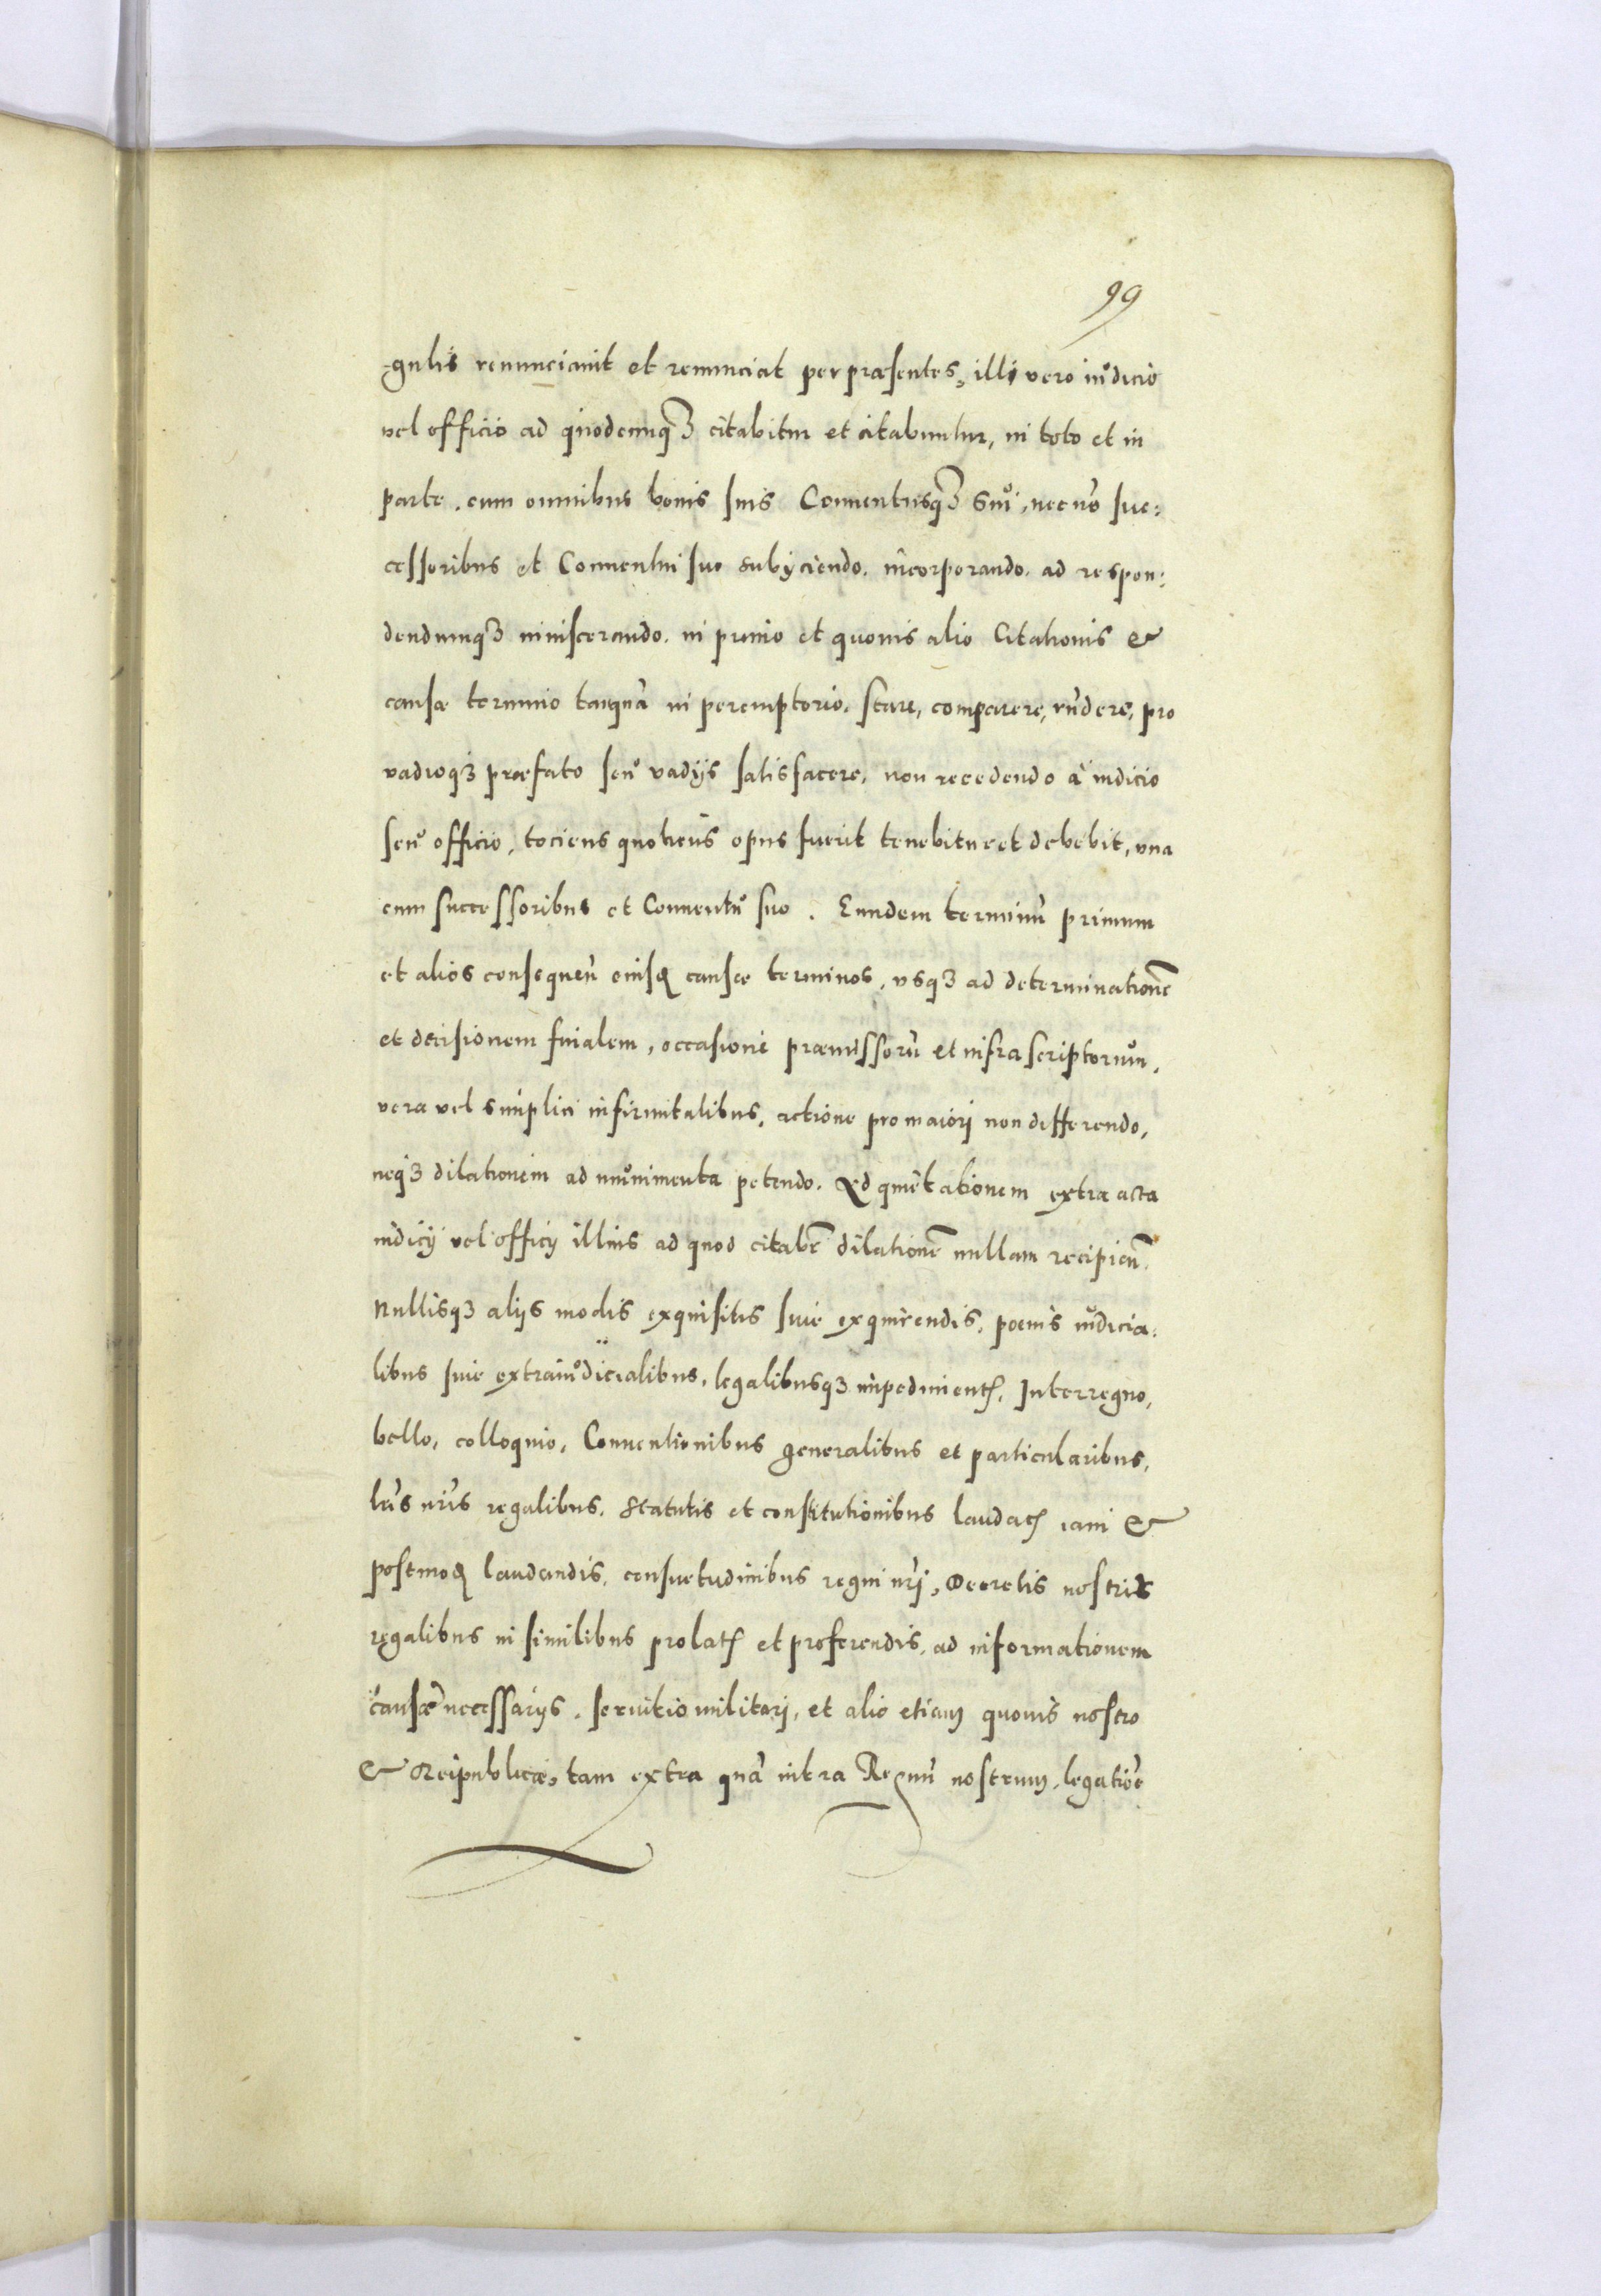 99
gulis renunciauit et renunciat per præsentes, illi vero iudicio
vel officio ad quodcunq3 citabitur et citabuntur, in toto et in
parte. cum omnibus bonis suis Conuentusq3 Sui, necnō suc:
cessoribus et Conuentui suo subijciendo. incorporando. ad respon:
dendumq3 inuiscerando. in primo et quouis alio Citationis &
causæ termino tanquā in peremptorio. stare, comparere, rñdere, pro
vadioq3 præfato seu vadijs satisfacere, non recedendo à iudicio
seu officio, tociens quotiens opus fuerit tenebitur et debebit, vna
cum successoribus et Conuentu suo. Eundem terminū primum
et alios consequeñ eiusꝗ causæ terminos, vsq3 ad determinationē
et decisionem finalem, occasione præmissorū et infrascriptorum,
vera vel simplici infirmitatibus, actione pro maiori non differendo,
neq3 dilationem ad munimenta petendo. Ad quietationem extra acta
iudicij vel officij illius ad quod citabr̄ dilationē nullam recipien̄.
Nullisq3 alijs modis exquisitis siue exquirendis, poenis iudicia:
libus siue extraiudicialibus, legalibusq3 impedimentꝭ. Interregno,
bello, colloquio, Conuentionibus generalibus et particularibus,
l͠ris nr͠is regalibus. Statutis et constitutionibus laudatꝭ iam &
postmoꝗ laudandis, consuetudinibus regni nr̄i, Decretis nostris
regalibus in similibus prolatꝭ et proferendis, ad informationem
causæ necessarijs. seruitio militari, et alio etiam quouis nostro
& Reipublicæ, tam extra quā intra Regnū nostrum, legatiōe